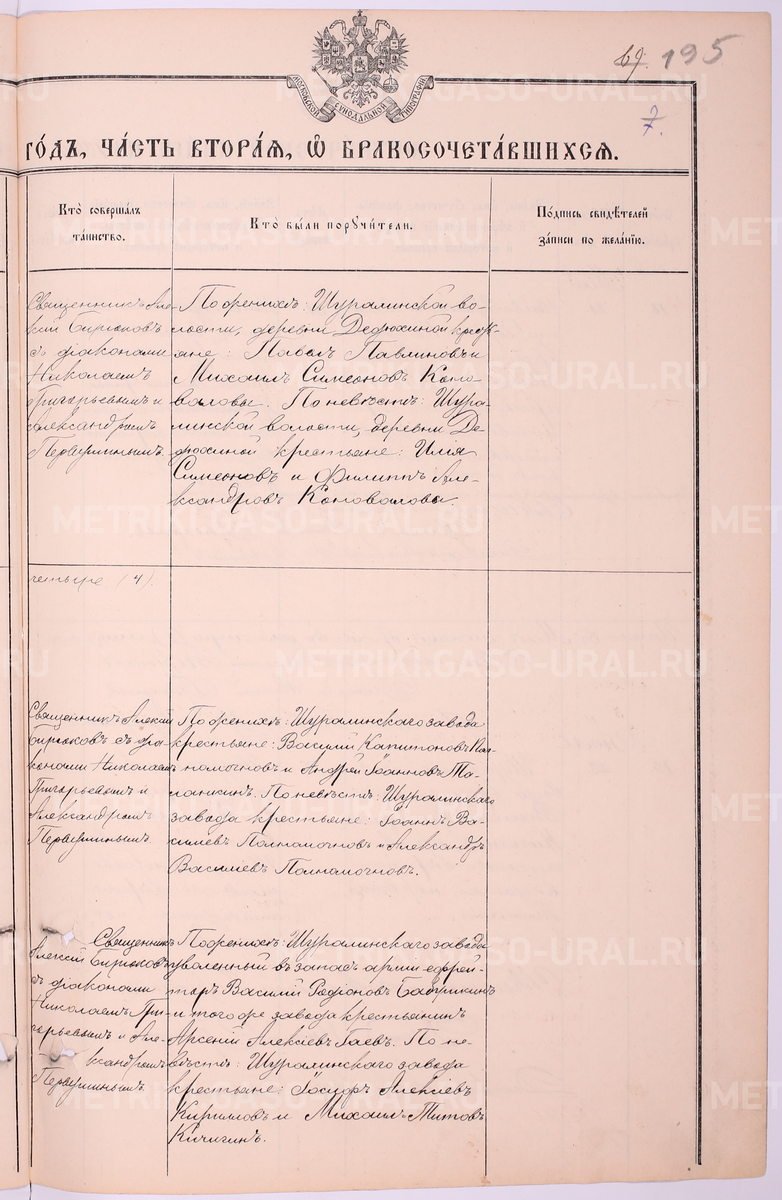 69. 195
7.
МОСКОВСКОЙ СѴНОДАЛЬНОЙ ТИПОГРАФІИ
ГОДЪ, ЧАСТЬ ВТОРАЯ, Ѡ БРАКОСОЧЕТАВШИХСЯ.
Кто совершалъ
таинство.
Кто были поручители.
Подпись свидѣтелей
записи по желанію.
Священникъ Але-
ксій Бирюковъ
съ діаконами
Николаемъ
Григорьевымъ и
Александромъ
Первушинымъ.
По женихѣ: Шуралинской во-
лости, деревни Дедюхиной кресть-
яне: Павелъ Павлиновъ и
Михаилъ Симеоновъ Коно-
валовы. По невѣстѣ: Шура-
линской волости, деревни Де-
дюхиной крестьяне: Илія
Симеоновъ и Филиппъ Але-
ксандровъ Коноваловы.
четыре (4).
Священникъ Алексій
Бирюковъ съ діа-
конами Николаемъ
Григорьевымъ и
Александромъ
Первушинымъ.
По женихѣ: Шуралинскаго завода
крестьяне: Василій Капитоновъ Пол-
номочновъ и Андрей Іоанновъ Та-
ланкинъ. По невѣстѣ: Шуралинскаго
завода крестьяне: Іоаннъ Ва-
силіевъ Полномочновъ и Александръ
Василіевъ Полномочновъ.
Священникъ
Алексій Бирюковъ
съ діаконами
Николаемъ Гри-
горьевымъ и Але-
ксандромъ
Первушинымъ.
По женихѣ: Шуралинскаго завода
уволенный въ запасъ арміи ефрей-
торъ Василій Родіоновъ Бабушкинъ
и того же завода крестьянинъ
Арсеній Алексіевъ Гаевъ. По не-
вѣстѣ: Шуралинскаго завода
крестьяне: Алексіевъ
Кириловъ и Михаилъ Титовъ
Кичигинъ.
METRIKI.GASO-URAL.RU